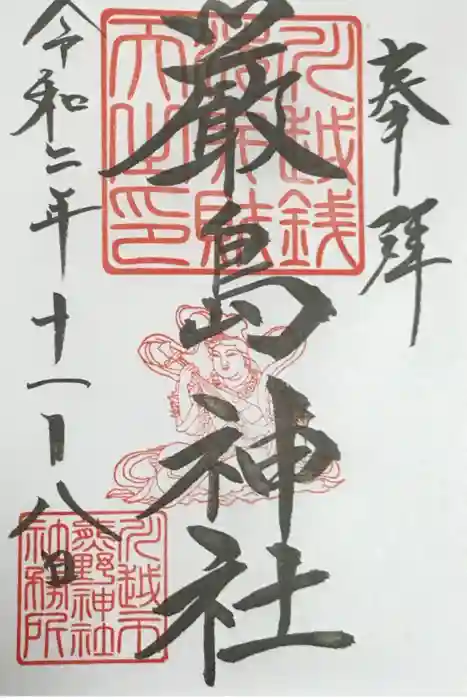 奉拝
厳島神社
令和二年十一月八日
川越銭
財
天之印
川越市
熊野神社
社務所